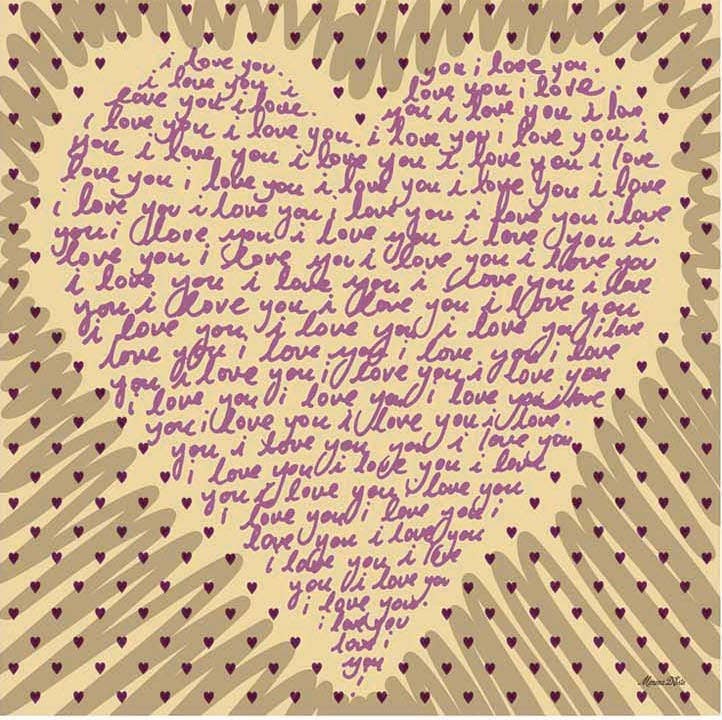 i love you. you i love you.
i love you i love you i love.
love you i love. you i love you i love
i love you i love you. i love you i love you i
you i love you i love you i love you i love
love you i love you i love you i love you i love
i love you i love you i love you i love you i love
you i love you i love you i love you i.
love you i love you i love you i love you
i love you i love you i love you i love
you i love you i love you i love you
i love you i love you i love you i love
love you i love you i love you i love
you i love you i love you i love you
i love you i love you i love you i love
you i love you i love you i love.
you i love you you i love you
i love you i love you i love
you i love you i love you
i love you i love you i
love you i love you
i love you i love
you i love you
i love you.
i love you
love i
you
i